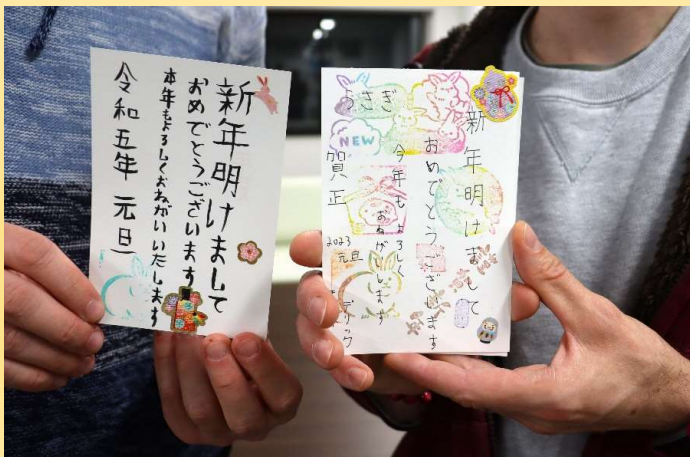 新年明けまして
おめでとうございます
本年もよろしくおねがいいたします
令和五年 元旦
うさぎ
NEW
新年明けまして
おめでとうございます
今年もよろしく
おねがいします
賀正
2023
元旦
デリック